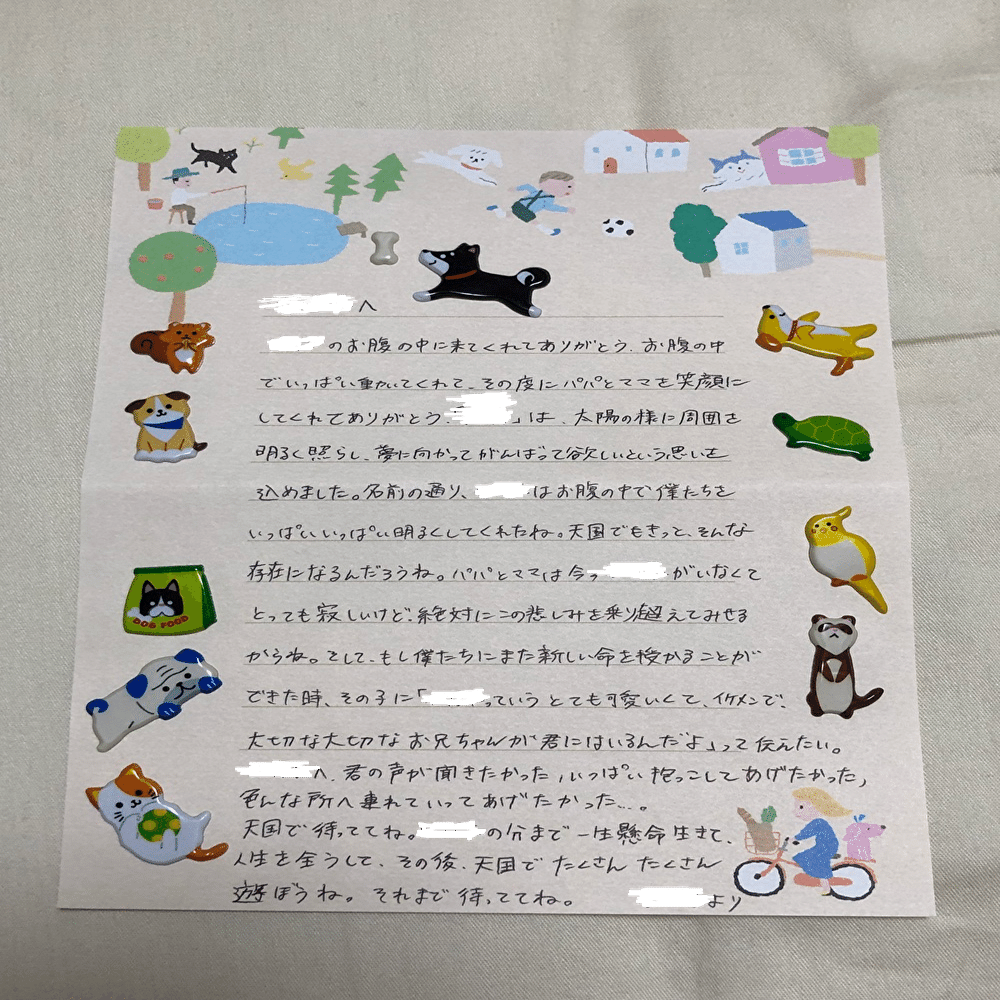 へ
のお腹の中に来てくれてありがとう。お腹の中
でいっぱい動いてくれて、その度にパパとママを笑顔に
してくれてありがとう。」は、太陽の様に周囲を
明るく照らし、夢に向かってがんばって欲しいという思いを
込めました。名前の通り、はお腹の中で僕たちを
いっぱいいっぱい明るくしてくれたね。天国でもきっと、そんな
存在になるんだろうね。パパとママは今っがいなくて
とっても寂しいけど、絶対にこの悲しみを乗り越えてみせる
からね。そして、もし僕たちにまた新しい命を授かることが
できた時、その子に「っていうとても可愛いくて、イケメンで、
大切な大切なお兄ちゃんが君にはいるんだよ」って伝えたい。
へ、君の声が聞きたかった,いっぱい抱っこしてあげたかった,
色んな所へ連れていってあげたかった…。
天国で待っててね。の分まで一生懸命生きて、
人生を全うして、その後、天国でたくさんたくさん
遊ぼうね。それまで待っててね。より
DOG FOOD